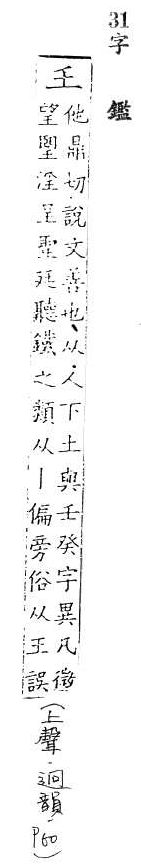 31字鑑
𡈼
他鼎切說文善也从人下土與壬癸字異凡徵
望聖淫呈聖廷聽鐵之類从丨偏旁俗从王誤
(上聲,迥韻,P60)